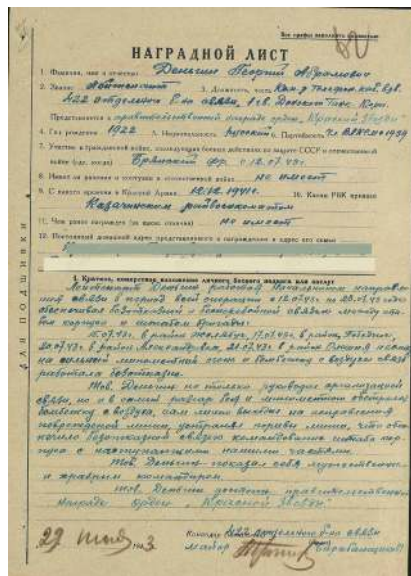 Все графы заполнять полностью
НАГРАДНОЙ ЛИСТ
1. Фамилия, имя и отчество Деньгин Георгий Абрамович
2. Звание Лейтенант 3. Должность, часть Ком-р Телеграф. каб. взв.
422 отдельного б-на связи, 1 гв. Донского Танк. Корп.
Представляется к правительственной награде ордену „Красная Звезда"
4. Год рождения 1922 5. Национальность русский 6. Партийность ВЛКСМ 1939
7. Участие в гражданской войне, последующих боевых действиях по защите СССР и отечественной
войне (где, когда) Брянский фр. с 12.07.43г.
8. Имеет ли ранения и контузии в отечественной войне не имеет
9. С какого времени в Красной Армии 12.12.1941г. 10. Каким РВК призван
Казачинским райвоенкоматом
11. Чем ранее награжден (за какие отличия) не имеет
12. Постоянный домашний адрес представляемого к награждению и адрес его семьи
ДЛЯ ПОДШИВКИ
1. Краткое, конкретное изложение личного боевого подвига или заслуг
Лейтенант Деньгин работая Начальником направления
связи в период всей операции с 12.07.43г. по
обеспечивал безотказной и бесперебойной связью между штабом
корпуса и штабом бригады.
15.07.43г. в районе Желябуг, 17.07.43г. в районе Победное,
20.07.43г. в районе Александровка, 21.07.43г. в районе
на сильный минометный огонь и бомбежку с воздуха связь
работала безотказно.
Тов. Деньгин не только руководил организацией
связи, но и в самый разгар боя и минометного обстрела,
бомбежку с воздуха, сам лично выходил на исправления
поврежденной линии, устранял порывы линии, что обеспечило
безотказной связью командование штаба корпуса
с наступающими нашими частями.
Тов. Деньгин показал себя мужественным
и храбрым командиром.
Тов. Деньгин достоин правительственной
награде ордену „Красной Звезды"
Командир 422 отдельного б-на связи
29 июля 1943 майор